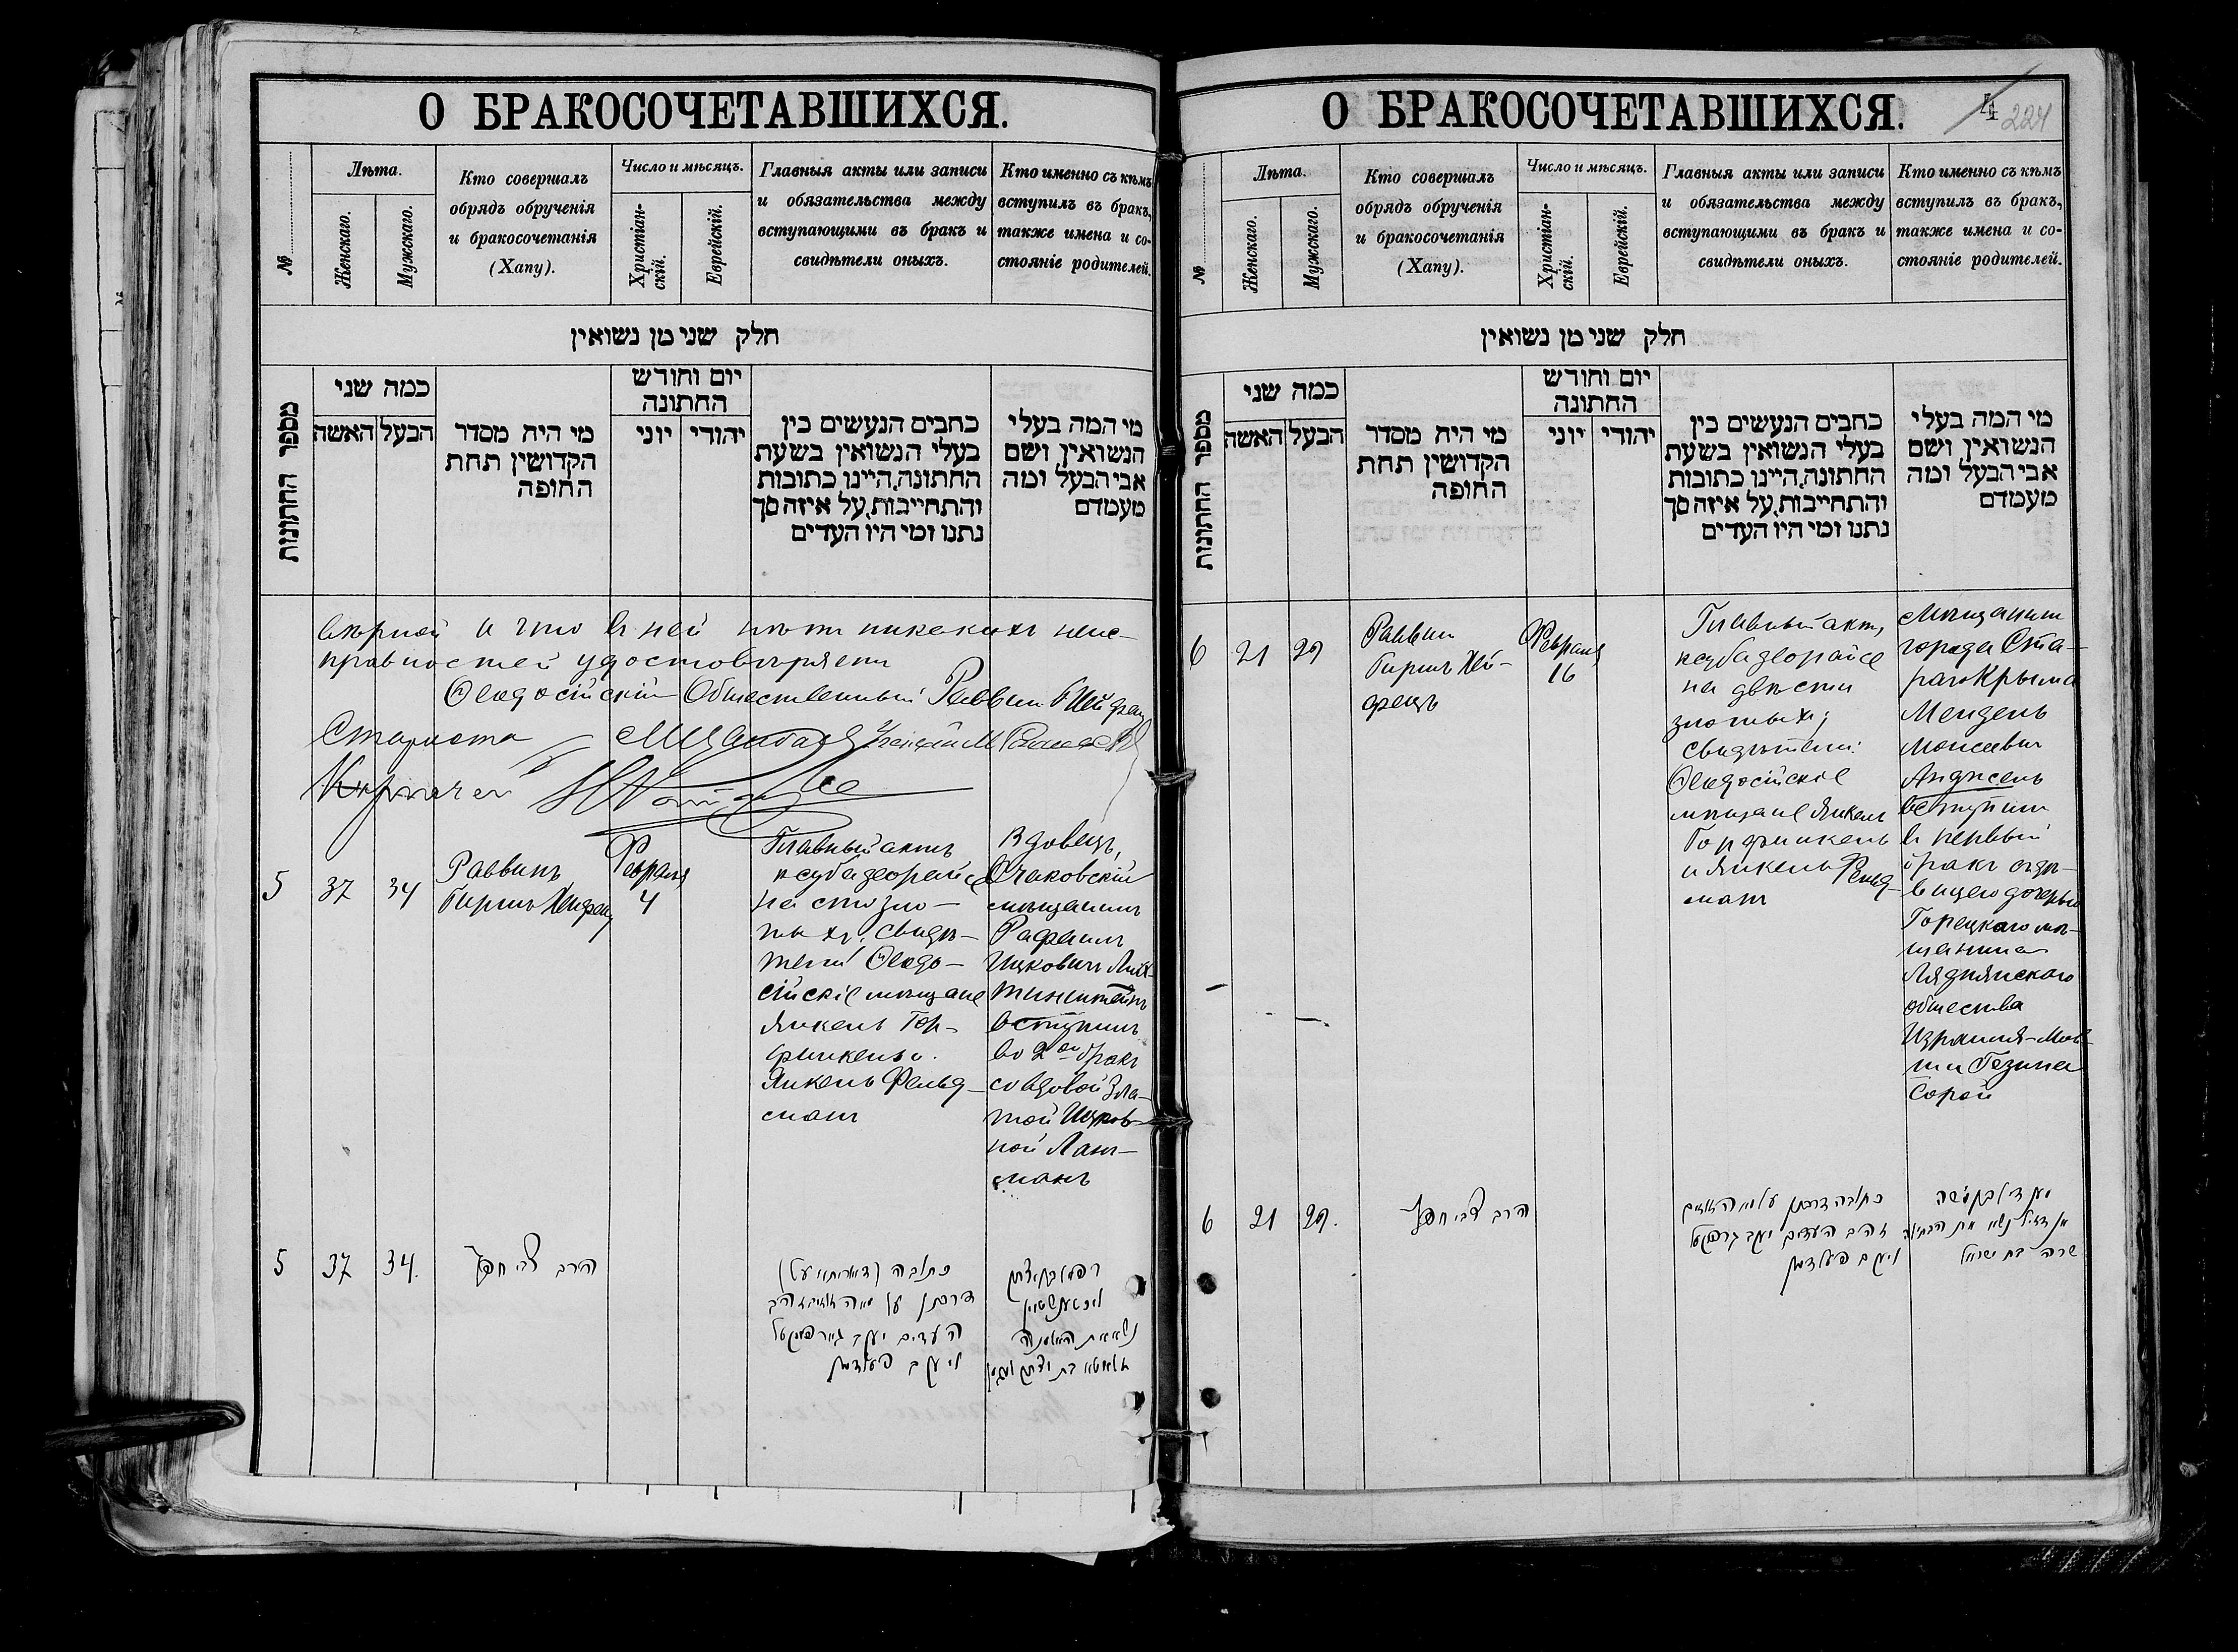 О БРАКОСОЧЕТАВШИХСЯ.
№
Лѣта.
Женскаго.
Мужскаго.
Кто совершалъ
обрядъ обрученія
и бракосочетанія
(Хапу).
Число и мѣсяцъ.
Христіан-
скій.
Еврейскій.
Главныя акты или записи
и обязательства между
вступающими въ бракъ и
свидѣтели оныхъ.
Кто именно съ кѣмъ
вступилъ въ бракъ,
также имена и со-
стояніе родителей.
חלק שני מן נשואין
מספר החתונות
כמה שני
האשה
הבעל
מי היה מסדר
הקדושין תחת
החופה
יום וחודש
החתונה
יוני
יהודי
כתבים הנעשים בין
בעלי הנשואין בשעת
החתונה, היינו כתובות
והתחייבות, על איזה סך
נתנו ומי היו העדים
מי המה בעלי
הנשואין ושם
אבי הבעל ומה
מעמדם
вѣрной и что въ ней нѣтъ никакихъ неис-
правностей удостовѣряетъ
Ѳеодосійскій Общественный Раввинъ
Староста
5
37
34
Раввинъ
Гиршъ Хейфецъ
Февраля
4
Главный актъ
ксуба деорайсе
на сто зло-
тыхъ; свидѣ-
тели Ѳеодо-
сійскіе мѣщане
Янкель Гор-
финкель и
Янкель Фельд-
манъ
Вдовецъ,
Очаковскій
мѣщанинъ
Рафаилъ
Ицковичъ Лих-
тинштейнъ
вступилъ
во 2ой бракъ
со вдовой Зла-
той Ицков-
ной Ланг-
манъ
5
37
34.
הרב צבי חפץ
כתובה
העדים יעקב
ויעקב פעלדמן
О БРАКОСОЧЕТАВШИХСЯ.
4
224
№
Лѣта.
Женскаго.
Мужскаго.
Кто совершалъ
обрядъ обрученія
и бракосочетанія
(Хапу).
Число и мѣсяцъ.
Христіан-
скій.
Еврейскій.
Главныя акты или записи
и обязательства между
вступающими въ бракъ и
свидѣтели оныхъ.
Кто именно съ кѣмъ
вступилъ въ бракъ,
также имена и со-
стояніе родителей.
חלק שני מן נשואין
מספר החתונות
כמה שני
האשה
הבעל
מי היה מסדר
הקדושין תחת
החופה
יום וחודש
החתונה
יוני
יהודי
כתבים הנעשים בין
בעלי הנשואין בשעת
החתונה, היינו כתובות
והתחייבות, על איזה סך
נתנו ומי היו העדים
מי המה בעלי
הנשואין ושם
אבי הבעל ומה
מעמדם
6
21
29
Раввинъ
Гиршъ Хей-
фецъ
Февраля
16
Главный актъ,
ксуба деорайсе
на двѣсти
злотыхъ;
свидѣтели:
Ѳеодосійскіе
мѣщане Янкель
Горфинкель
и Янкель Фельд-
манъ
Мѣщанинъ
города Ста-
раго Крыма
Мендель
Моисеевичъ
вступилъ
въ первый
бракъ съ дѣ-
вицею дочерью
Горецкаго мѣ-
щанина
Ляднянскаго
общества
Израиля-Мов-
ши Гезина
Сорой
6
21
29.
הרב צבי חפץ
העדים יעקב
ויעקב פעלדמן
שרה בת ישראל